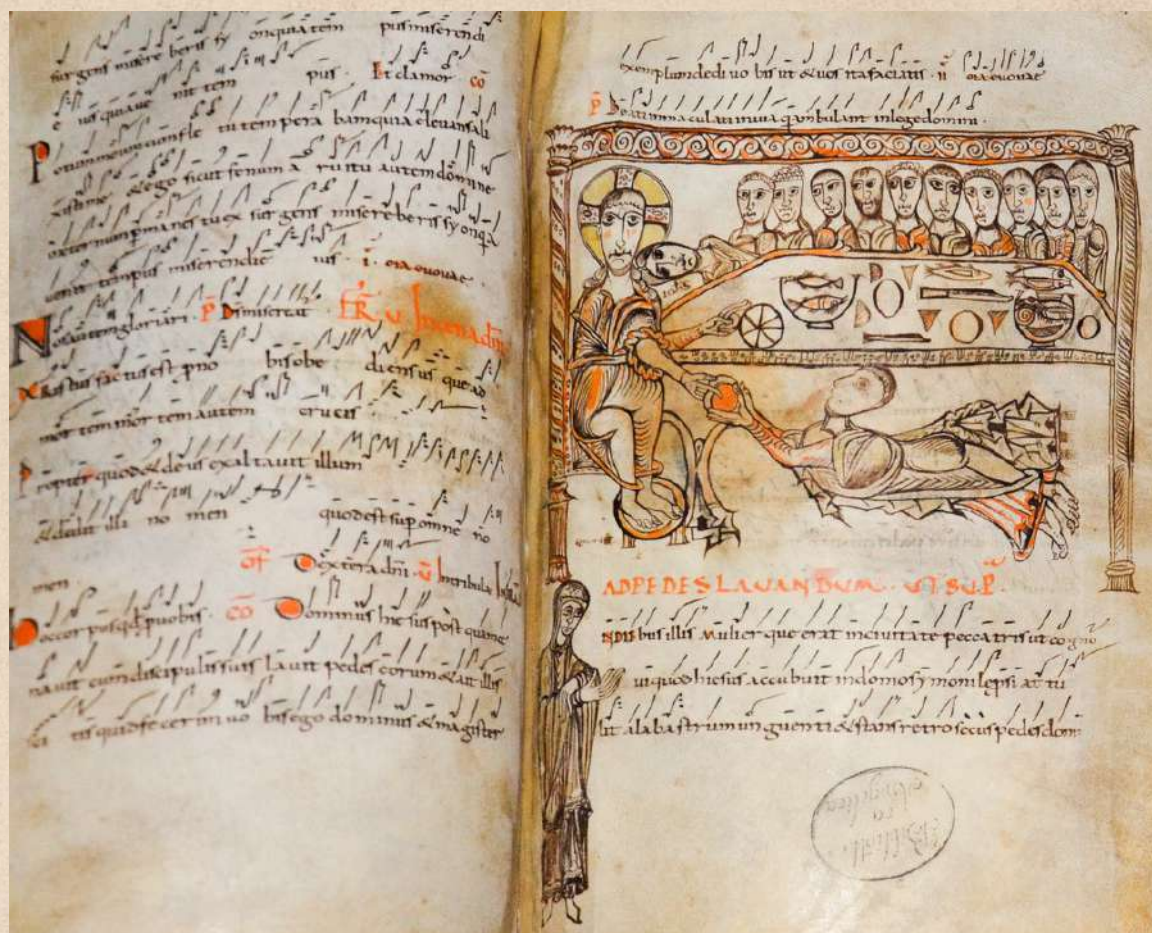 surgens misere beris sy on quia tem pus miserendi
e ius quia ue nit tem pus. Et clamor co
Potum meum cum fle tu temperabam quia eleuans ali
sisti me & ego sicut fenum a rui tu autem domine
ineternum permanes tu exsurgens misereberis syon quia
uenit tempus miserendi e ius. i. eia euouae
Nos autem gloriari. P Ds misereat GR V In cena dni
Xristus factus est pro no bis obe diens us que ad
mortem mortem autem crucis
Propter quod & deus exaltauit illum
& dedit illi no men quod est sup omne no
men OF Dextera dni. V In tribula
co Dominus hiesus post quam ce
nauit cum discipulis suis lauit pedes eorum & ait illis
sci tis quid fecerim uo bis ego dominus & magister
exemplum dedi uo bis ut & uos ita faciatis. ii
P Beati inmaculati in uia qui ambulant in lege domini.
AD PEDES LAUANDUM
In diebus illis Mulier que erat in ciuitate peccatrix ut cogno
ui quod hiesus accubuit in domo symoni lepsi at tu
lit alabastrum unguenti & stans retro secus pedes domi
Biblioth.
ca
Angelica